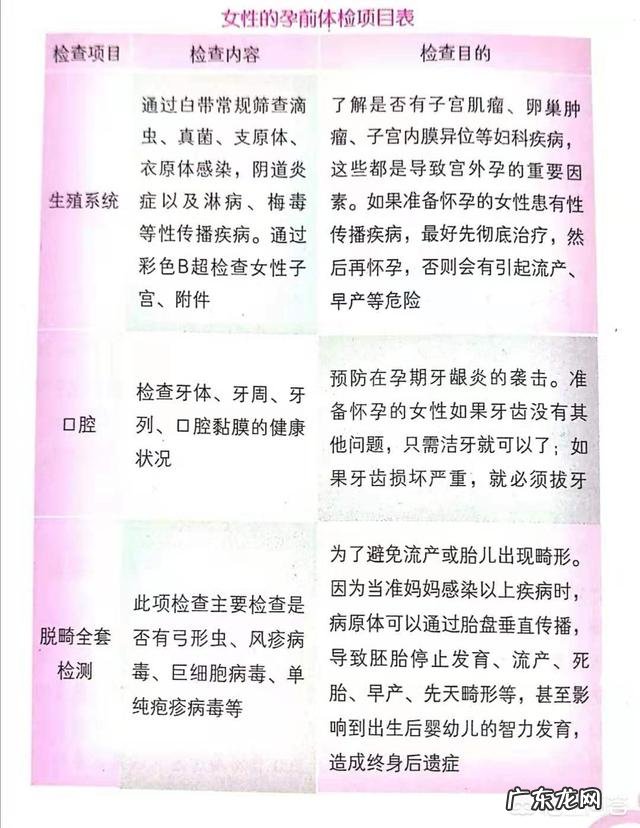 女性的孕前体检项目表
检查项目
检查内容
检查目的
生殖系统
通过白带常规筛查滴
虫、真菌、支原体、
衣原体感染，阴道炎
症以及淋病、梅毒
等性传播疾病。通过
彩色B超检查女性子
宫、附件
了解是否有子宫肌瘤、卵巢肿
瘤、子宫内膜异位等妇科疾病，
这些都是导致宫外孕的重要因
素。如果准备怀孕的女性患有性
传播疾病，最好先彻底治疗，然
后再怀孕，否则会有引起流产、
早产等危险
口腔
检查牙体、牙周、牙
列、口腔黏膜的健康
状况
预防在孕期牙龈炎的袭击。准
备怀孕的女性如果牙齿没有其
他问题，只需洁牙就可以了；如
果牙齿损坏严重，就必须拔牙
脱畸全套
检测
此项检查主要检查是
否有弓形虫、风疹病
毒、巨细胞病毒、单
纯疱疹病毒等
为了避免流产或胎儿出现畸形。
因为当准妈妈感染以上疾病时，
病原体可以通过胎盘垂直传播，
导致胚胎停止发育、流产、死
胎、早产、先天畸形等，甚至影
响到出生后婴幼儿的智力发育，
造成终身后遗症
广东龙网